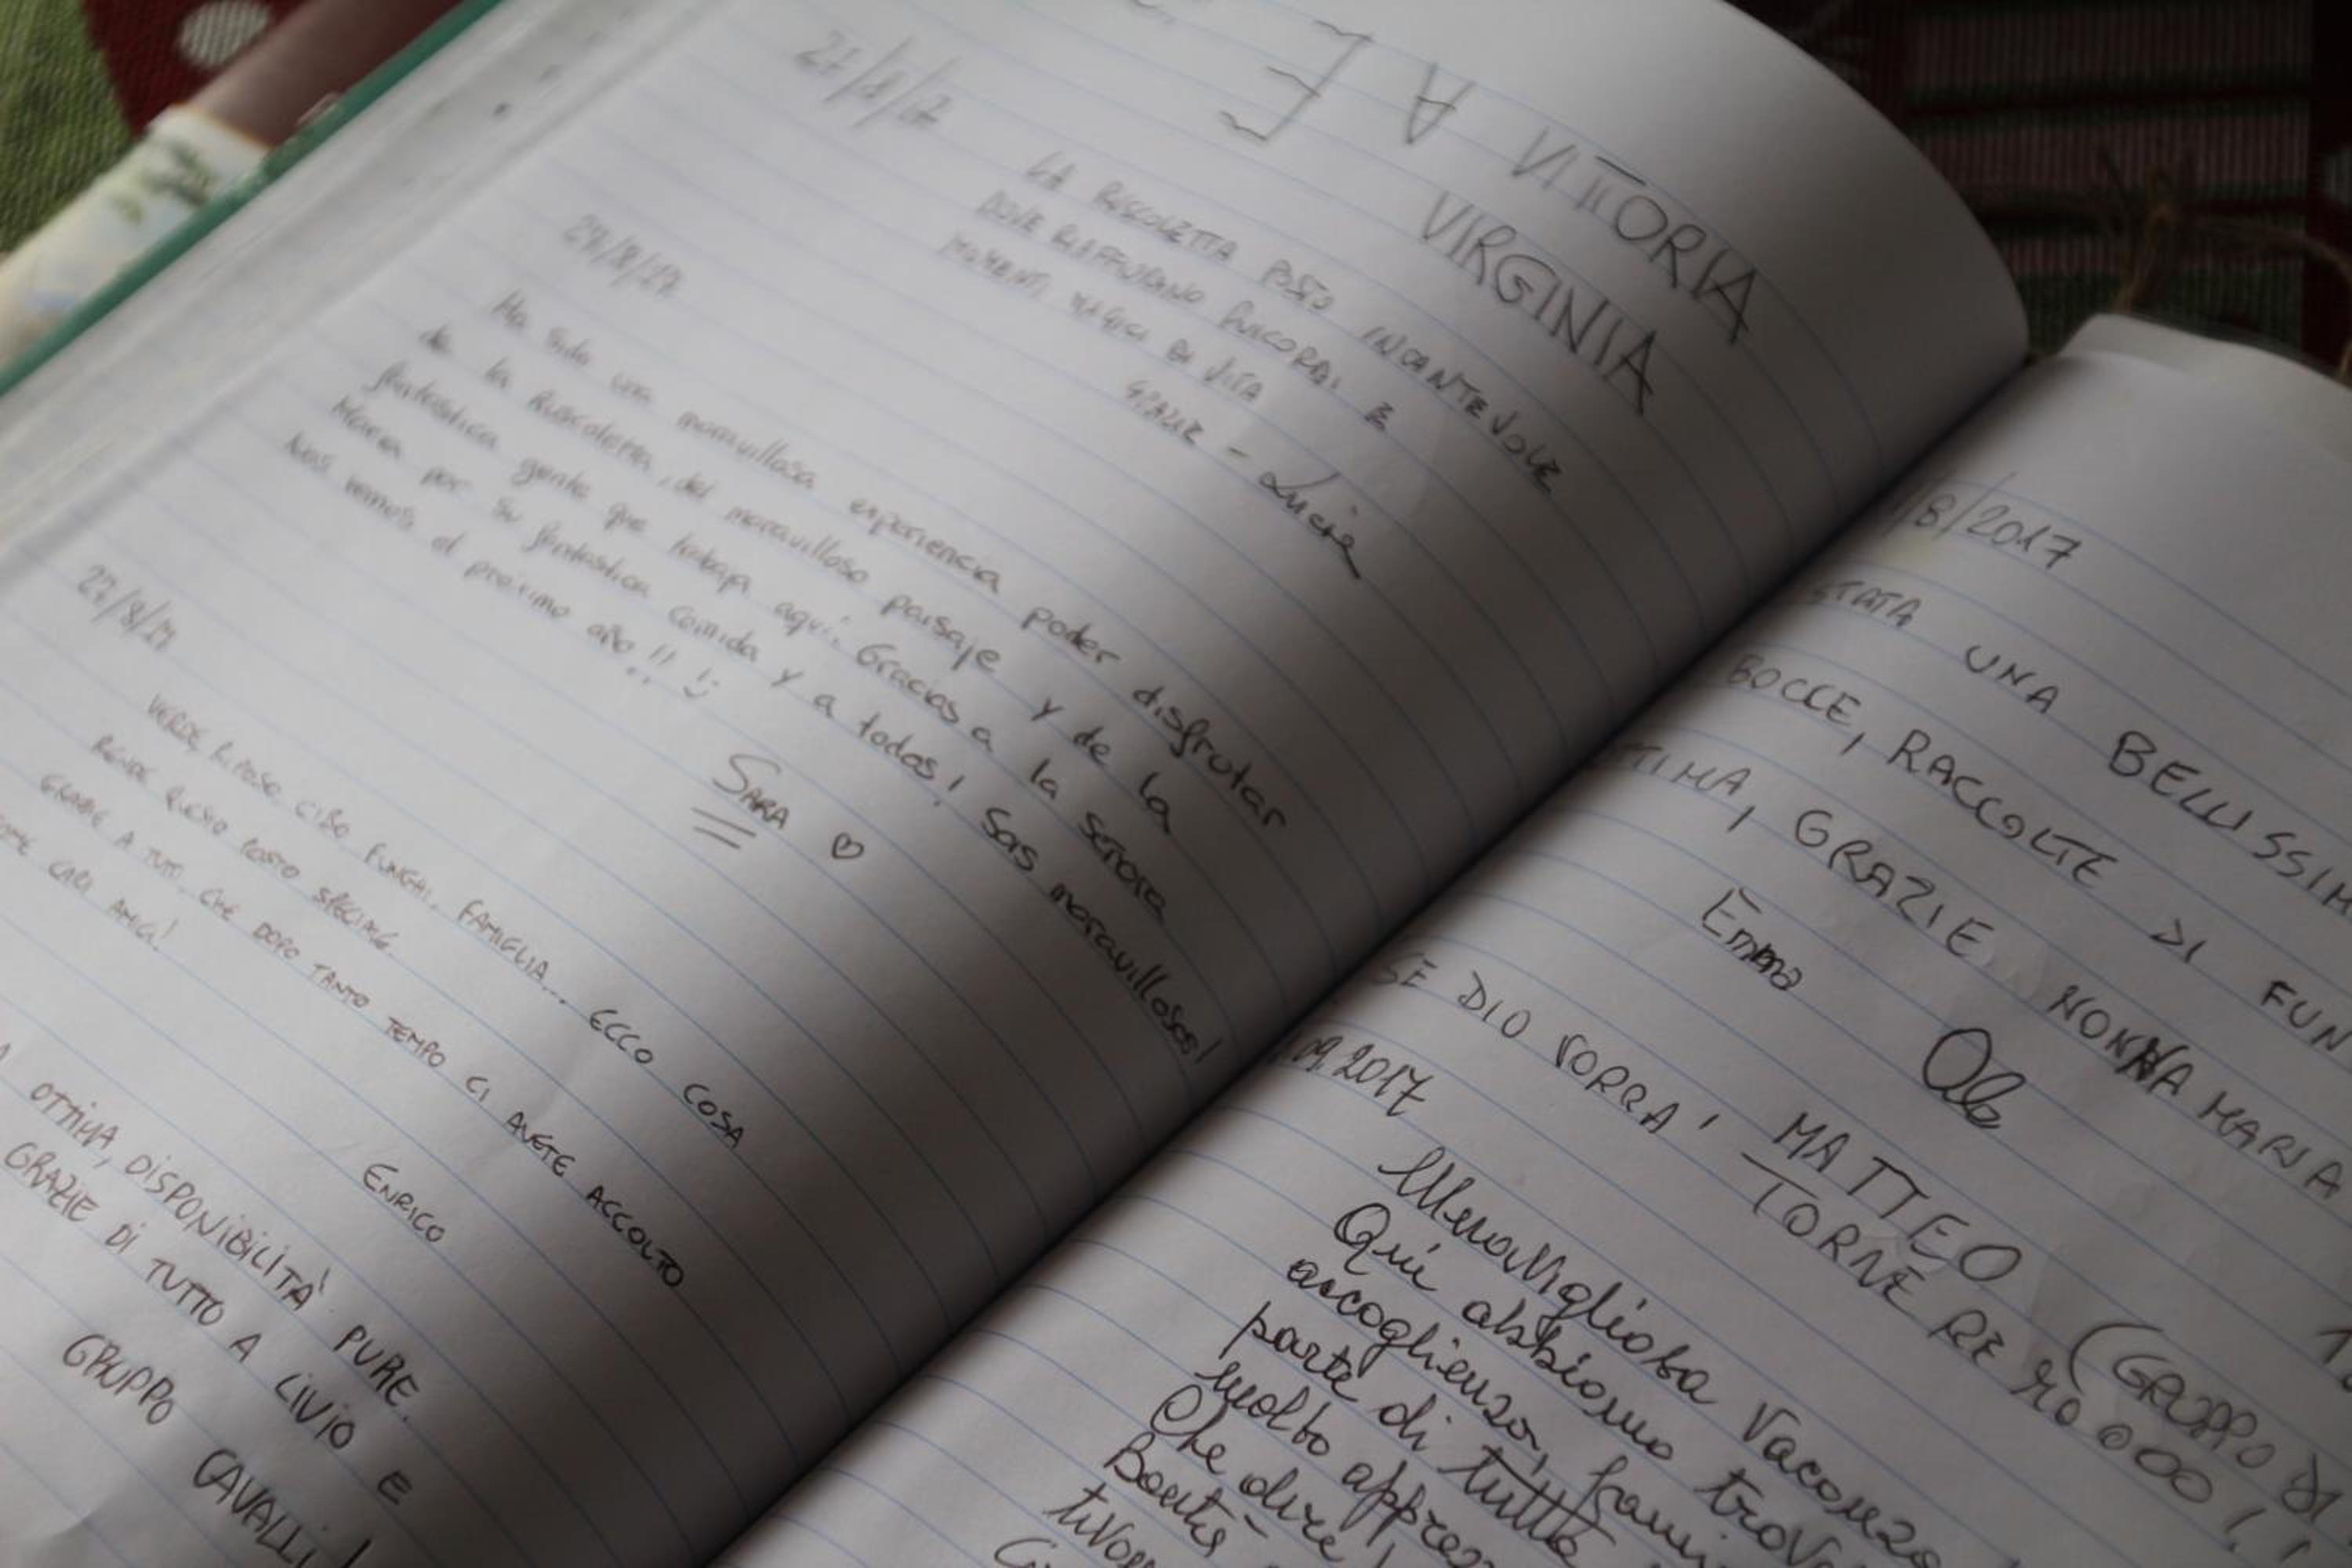 A VITTORIA
VIRGINIA
LA RUSCOLETTA POSTO INCANTEVOLE
DOVE RIAFFIORANO RICORDI E
MOMENTI MAGICI DI VITA
GRAZIE - Lucia
Ha sido una maravillosa experiencia poder disfrutar
de la Ruscoletta, del maravilloso paisaje y de la
fantástica gente que trabaja aquí. Gracias a la señora
Maria por su fantástica comida y a todos! Sois maravillosos!
Nos vemos el próximo año!! :)
SARA ♡
VERDE, RIPOSO, CIBO, FUNGHI, FAMIGLIA... ECCO COSA
RENDE QUESTO POSTO SPECIALE.
GRAZIE A TUTTI, CHE DOPO TANTO TEMPO CI AVETE ACCOLTO
COME CARI AMICI!
ENRICO
OTTIMA, DISPONIBILITÀ PURE.
GRAZIE DI TUTTO A LIVIO E
GRUPPO CAVALLI!
/8/2017
STATA UNA BELLISSIM
BOCCE, RACCOLTE DI FUN
TIMA, GRAZIE NONNA MARIA
Emma Ale
SE DIO VORRA' MATTEO (GRUPPO DI
TORNERE
09.2017
Meravigliosa Vacanza
Qui abbiamo trova
accoglienza, fami
parte di tutta
molto appre
Che dire!
Bontà